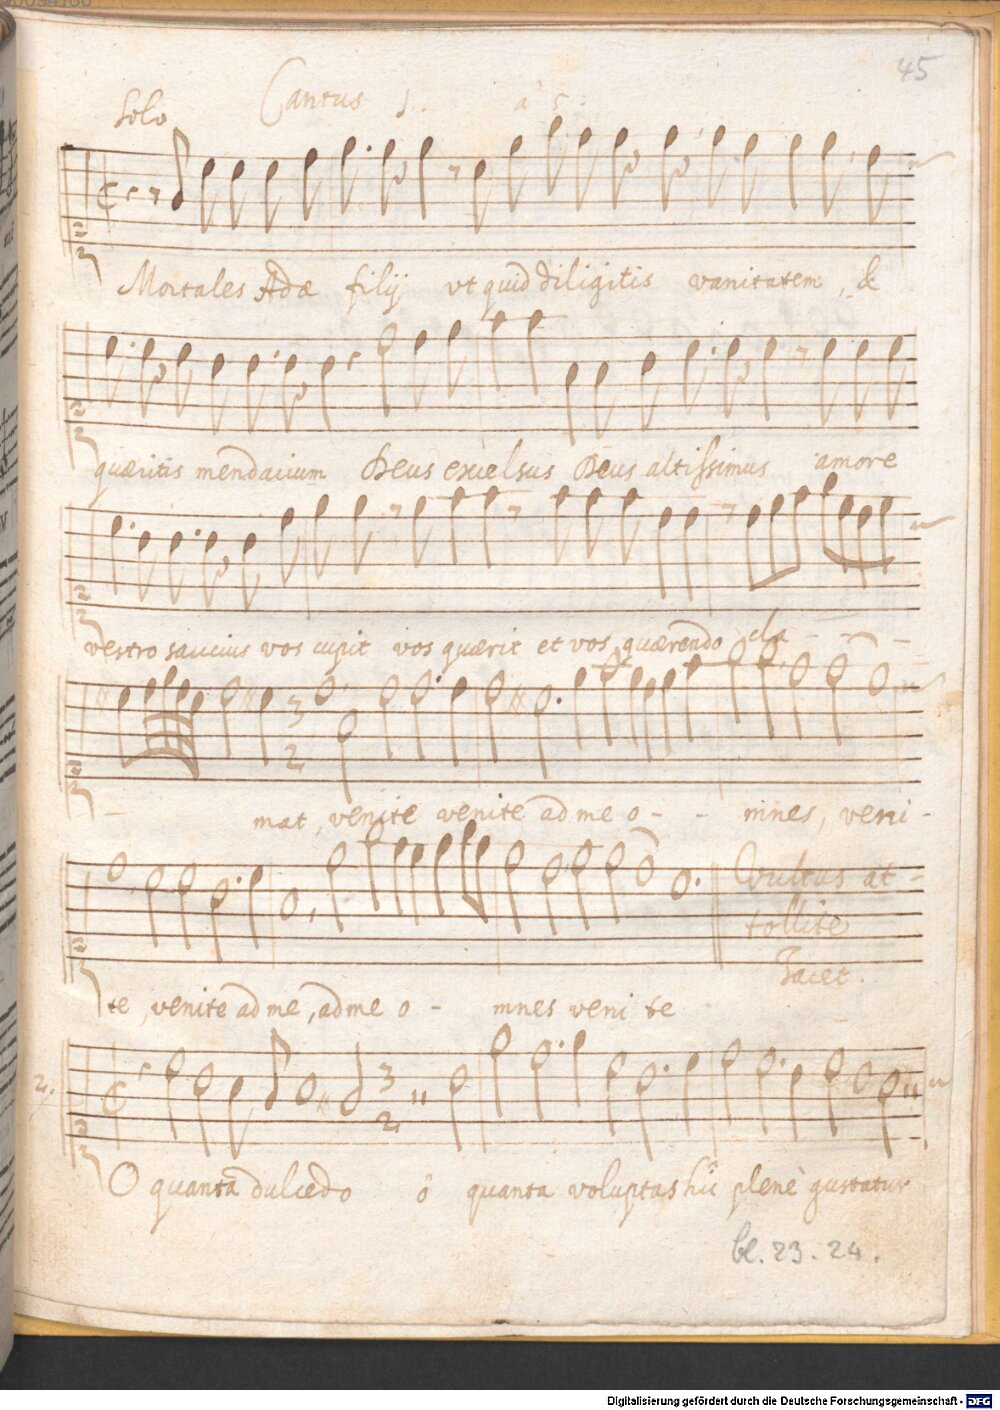 45
Solo Cantus 1. à 5.
Mortales Adæ filij vt quid diligitis vanitatem, &
quæritis mendacium Deus excelsus Deus altissimus amore
vestro saucius vos cupit vos quærit et vos quærendo cla - - -
- mat, venite venite ad me o - - mnes, veni -
te, venite ad me, ad me o - mnes veni te
vultus at -
tollite
Tacet.
2.
O quanta dulcedo ô quanta voluptas hîc plenè gustatur
bl. 23. 24.
Digitalisierung gefördert durch die Deutsche Forschungsgemeinschaft - DFG